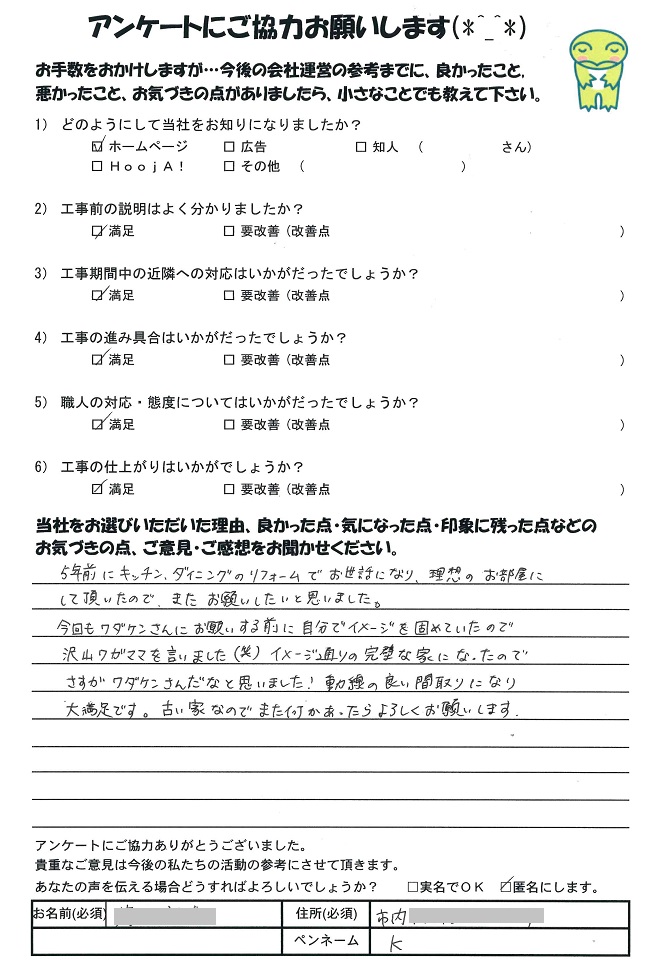 アンケートにご協力お願いします(*^_^*)
お手数をおかけしますが…今後の会社運営の参考までに、良かったこと、
悪かったこと、お気づきの点がありましたら、小さなことでも教えて下さい。
1) どのようにして当社をお知りになりましたか?
☑ ホームページ □ 広告 □ 知人 ( さん)
□ HoojA! □ その他 ( )
2) 工事前の説明はよく分かりましたか?
☑ 満足 □ 要改善 (改善点 )
3) 工事期間中の近隣への対応はいかがだったでしょうか?
☑ 満足 □ 要改善 (改善点 )
4) 工事の進み具合はいかがだったでしょうか?
☑ 満足 □ 要改善 (改善点 )
5) 職人の対応・態度についてはいかがだったでしょうか?
☑ 満足 □ 要改善 (改善点 )
6) 工事の仕上がりはいかがでしょうか?
☑ 満足 □ 要改善 (改善点 )
当社をお選びいただいた理由、良かった点・気になった点・印象に残った点などの
お気づきの点、ご意見・ご感想をお聞かせください。
5年前にキッチン、ダイニングのリフォームでお世話になり、理想のお部屋に
して頂いたので、またお願いしたいと思いました。
今回もワダケンさんにお願いする前に自分でイメージを固めていたので
沢山ワガママを言いました(笑) イメージ通りの完璧な家になったので
さすがワダケンさんだなと思いました! 動線の良い間取りになり
大満足です。古い家なのでまた何かあったらよろしくお願いします.
アンケートにご協力ありがとうございました。
貴重なご意見は今後の私たちの活動の参考にさせて頂きます。
あなたの声を伝える場合どうすればよろしいでしょうか? □実名でOK ☑匿名にします。
お名前(必須) 住所(必須) 市内
ペンネーム K